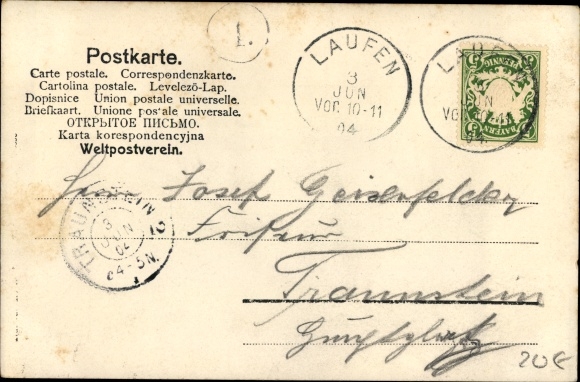 1.
Postkarte.
Carte postale. Correspondenzkarte.
Cartolina postale. Levelező-Lap.
Dopisnice Union postale universelle.
Briefkaart. Unione postale universale.
ОТКРЫТОЕ ПИСЬМО.
Karta korespondencyjna
Weltpostverein.
LAUFEN
3
JUN
VOR. 10-11
04
LAUFEN
JUN
VOR. 10-11
04
PFENNIG
BAYERN
5
Herrn Josef
Friseur
Traunstein
TRAUNSTEIN
3
JUN
04
4-5 N.
2
20€